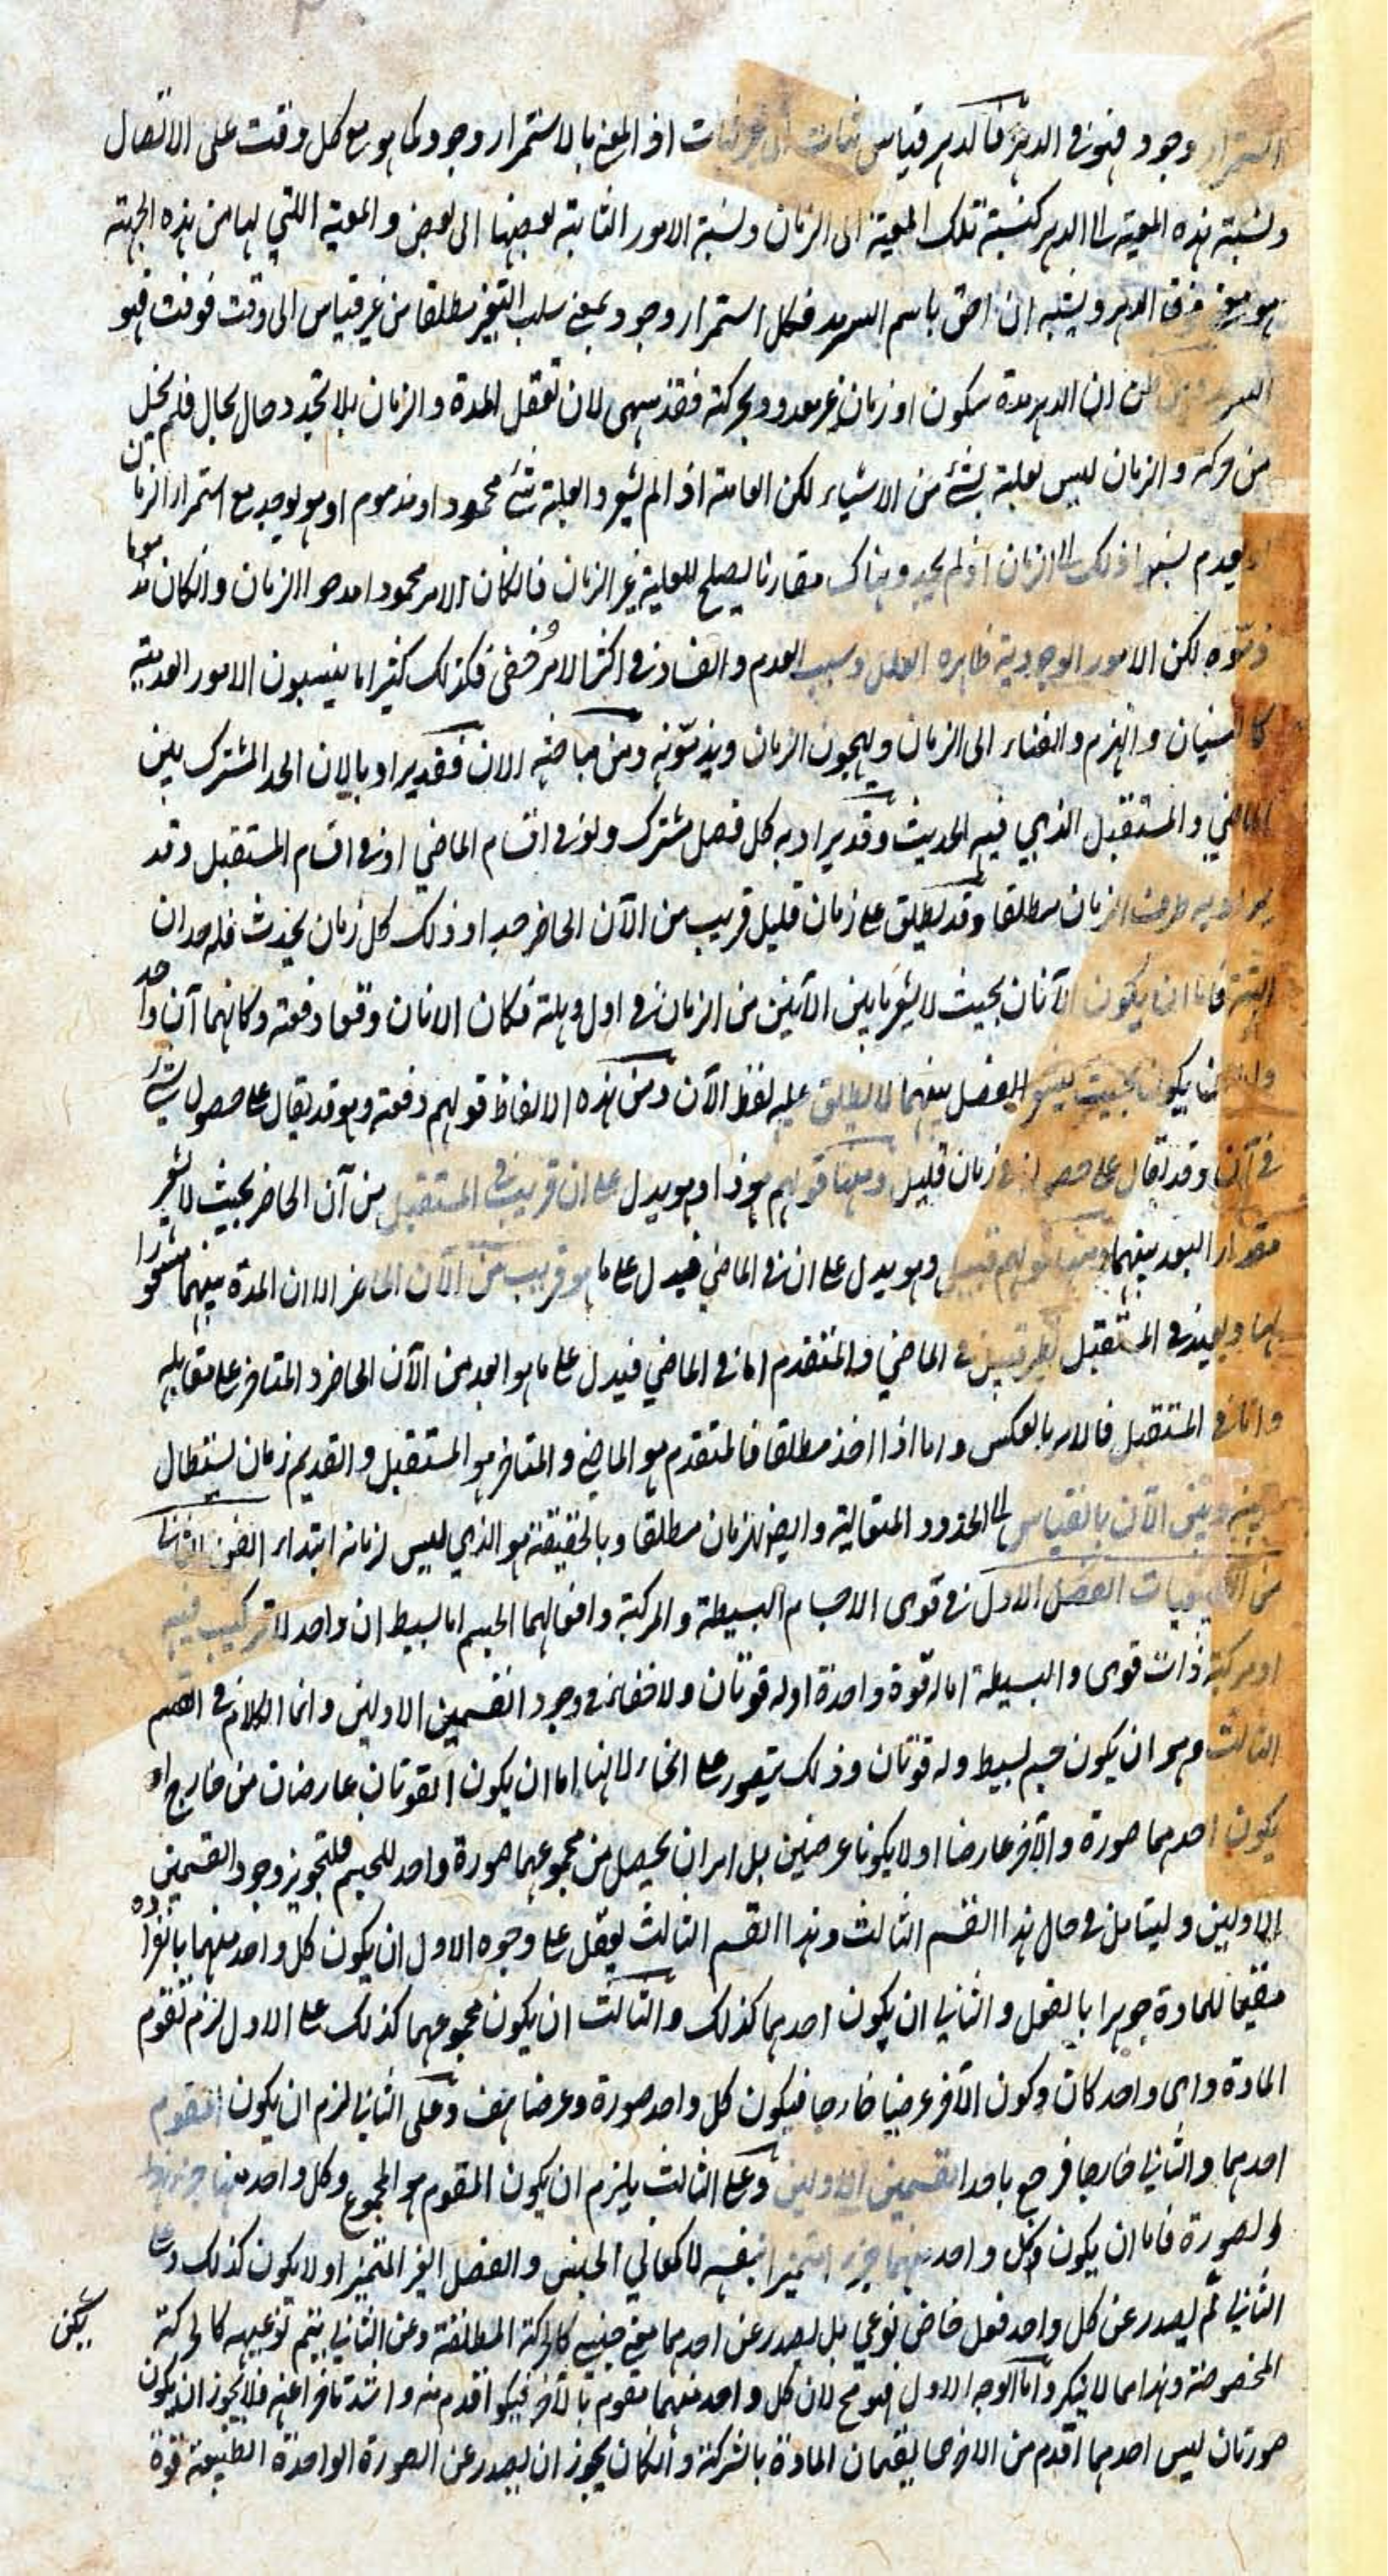 استمرار وجود فهو فى الدهر فالدهر قياس ثبات الى غير ثبات اذ المعنى بالاستمرار وجوده كما هو مع كل وقت على الاتصال
ونسبة هذه المعية الى الدهر كنسبة تلك المعية الى الزمان ونسبة الامور الثابتة بعضها الى بعض والمعية اللتي لها من هذه الجهة
هو معنى فوق الدهر ويشبه ان احق باسم السرمد فكل استمرار وجود بمعنى سلب التغير مطلقا من غير قياس الى وقت فوقت فهو
السرمد ظن ان الدهر مدة سكون او زمان غير معدود بحركة فقد سهى لان تعقل المدة والزمان بلا تجدد حال بحال فلم يخل
من حركة والزمان ليس بعلة بشئ من الاشياء لكن العامة اذا لم يشعروا لعلة شئ محمود او مذموم او هو يوجد مع استمرار الزمان
او يعدم نسبوا ذلك الى الزمان اذ لم يجدوا هناك مقارنا يصلح للعلية غير الزمان فالكان الامر محمودا مدحوا الزمان والكان مذموما
ذمّوه لكن الامور الوجودية ظاهرة العلل وسبب العدم والفساد فى اكثر الامر خفى فكذلك كثيرا ما ينسبون الامور العدمية
كالنسيان والهرم والفناء الى الزمان ويهجون الزمان ويذمّونه ومن مباحثه الان فقد يراد بالان الحد المشترك بين
الماضي والمستقبل الذي فيه الحديث وقد يراد به كل فصل مشترك ولو فى اقسام الماضي او فى اقسام المستقبل وقد
يراد به طرف الزمان مطلقا وقد يطلق على زمان قليل قريب من الآن الحاضر جدا وذلك كل زمان يحدث فله حدان
البتة فاما ان يكون الآنان بحيث لا يشعر ما بين الآنين من الزمان فى اول وهلة فكان الانان وقعا دفعة وكانهما آن واحد
واما ان يكونا بحيث يشعر الفصل بينهما لا يطلق عليه لفظ الآن ومن هذه الالفاظ قولهم دفعة وهو قد يقال على حصول شئ
فى آن وقد يقال على حصوله فى زمان قليل ومنها قولهم هوذا وهو يدل على ان قريب فى المستقبل من آن الحاضر بحيث لا يشعر
مقدار البعد بينهما ومنها قولهم قبيل وهو يدل على ان فى الماضي فيدل على ما هو قريب من الآن الحاضر الا ان المدة بينهما مشعورا
بها وبعيد فى المستقبل نظير قبيل فى الماضي والمتقدم اما فى الماضي فيدل على ما هو ابعد من الآن الحاضر والمتاخر على مقابله
واما فى المستقبل فالامر بالعكس واما اذا اخذ مطلقا فالمتقدم هو الماضي والمتاخر هو المستقبل والقديم زمان يستطال
بينه وبين الآن بالقياس الى الحدود المتعالية وايضا لزمان مطلقا وبالحقيقة هو الذي ليس لزمانه ابتداء الفن الثانى
من الطبيعيات الفصل الاول فى قوى الاجسام البسيطة والمركبة وافعالهما الجسم اما بسيط ان واحد لا تركيب فيه
او مركبة ذات قوى والبسيطة اما له قوة واحدة او له قوتان ولا خفاء فى وجود القسمين الاولين وانما الكلام فى القسم
الثالث وهو ان يكون جسم بسيط وله قوتان وذلك يتصور على انحاء لانها اما ان يكون القوتان عارضان من خارج او
يكون احدهما صورة والآخر عارضا او لا يكونا عرضين بل امران يحصل من مجموعهما صورة واحد للجسم فلتجوز وجود القسمين
الاولين وليتامل فى حال هذا القسم الثالث وهذا القسم الثالث يعقل على وجوه الاول ان يكون كل واحد منهما بانفراده
مقيما للمادة جوهرا بالفعل والثاني ان يكون احدهما كذلك والثالث ان يكون مجموعهما كذلك على الاول لزم تقوم
المادة واى واحد كان وكون الآخر عرضيا خارجا فيكون كل واحد صورة وعرضا هف وعلى الثاني لزم ان يكون المقوم
احدهما والثاني خارجا فرجع باحد القسمين الاولين وعلى الثالث يلزم ان يكون المقوم هو المجموع وكل واحد منهما جزء
الصورة فاما ان يكون كل واحد منهما جزء متميزا بنفسه لا كمعاني الجنس والفصل الغير المتميز او لا يكون كذلك وعلى
الثاني لم يصدر عن كل واحد فعل خاص نوعي بل يصدر عن احدهما معنى جنسي كالحركة المطلقة وعن الثاني يتم نوعيه كالحركة
المخصوصة وهذا مما لا ينكر واما الوجه الاول فهو مح لان كل واحد منهما مقوم بالآخر فيكون اقدم منه واشد تاخرا عنه فلا يجوز ان يكون
صورتان ليس احدهما اقدم من الاخرى يقيمان المادة بالشركة والكان يجوز ان يصدر عن الصورة الواحدة الطبيعة قوة
يمكن